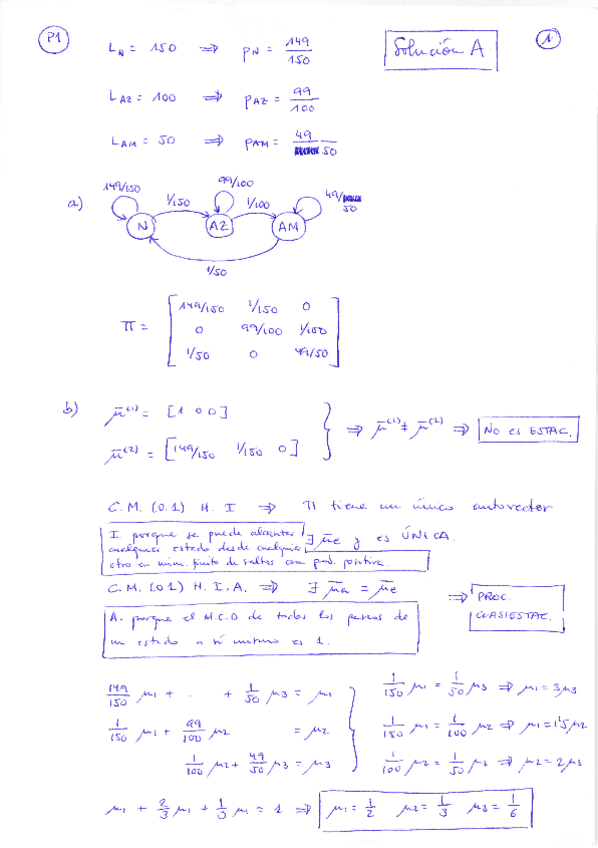 P1
Solución A
1
L_N = 150 ⟹ p_N = 149/150
L_AZ = 100 ⟹ p_AZ = 99/100
L_AM = 50 ⟹ p_AM = 49/50
a)
149/150 1/150 99/100 1/100 49/50
N AZ AM
1/50
Π = [149/150 1/150 0
0 99/100 1/100
1/50 0 49/50]
b) μ̄⁽¹⁾ = [1 0 0]
μ̄⁽²⁾ = [149/150 1/150 0]
⟹ μ̄⁽¹⁾ ≠ μ̄⁽²⁾ ⟹ No es ESTAC.
C.M. (0.1) H. I ⟹ Π tiene un único autovector
∃ μ̄e y es ÚNICA.
I. porque se puede alcanzar
cualquier estado desde cualquier
otro en núm. finito de saltos con prob. positiva.
C.M. (01) H.I.A. ⟹ ∃ μ̄a = μ̄e ⟹ PROC. CUASIESTAC.
A. porque el M.C.D de todos los paseos de
un estado a sí mismo es 1.
149/150 μ1 + . + 1/50 μ3 = μ1
1/150 μ1 + 99/100 μ2 = μ2
1/100 μ2 + 49/50 μ3 = μ3
1/150 μ1 = 1/50 μ3 ⟹ μ1 = 3μ3
1/150 μ1 = 1/100 μ2 ⟹ μ1 = 1'5μ2
1/100 μ2 = 1/50 μ3 ⟹ μ2 = 2μ3
μ1 + 2/3 μ1 + 1/3 μ1 = 1 ⟹ μ1 = 1/2 μ2 = 1/3 μ3 = 1/6